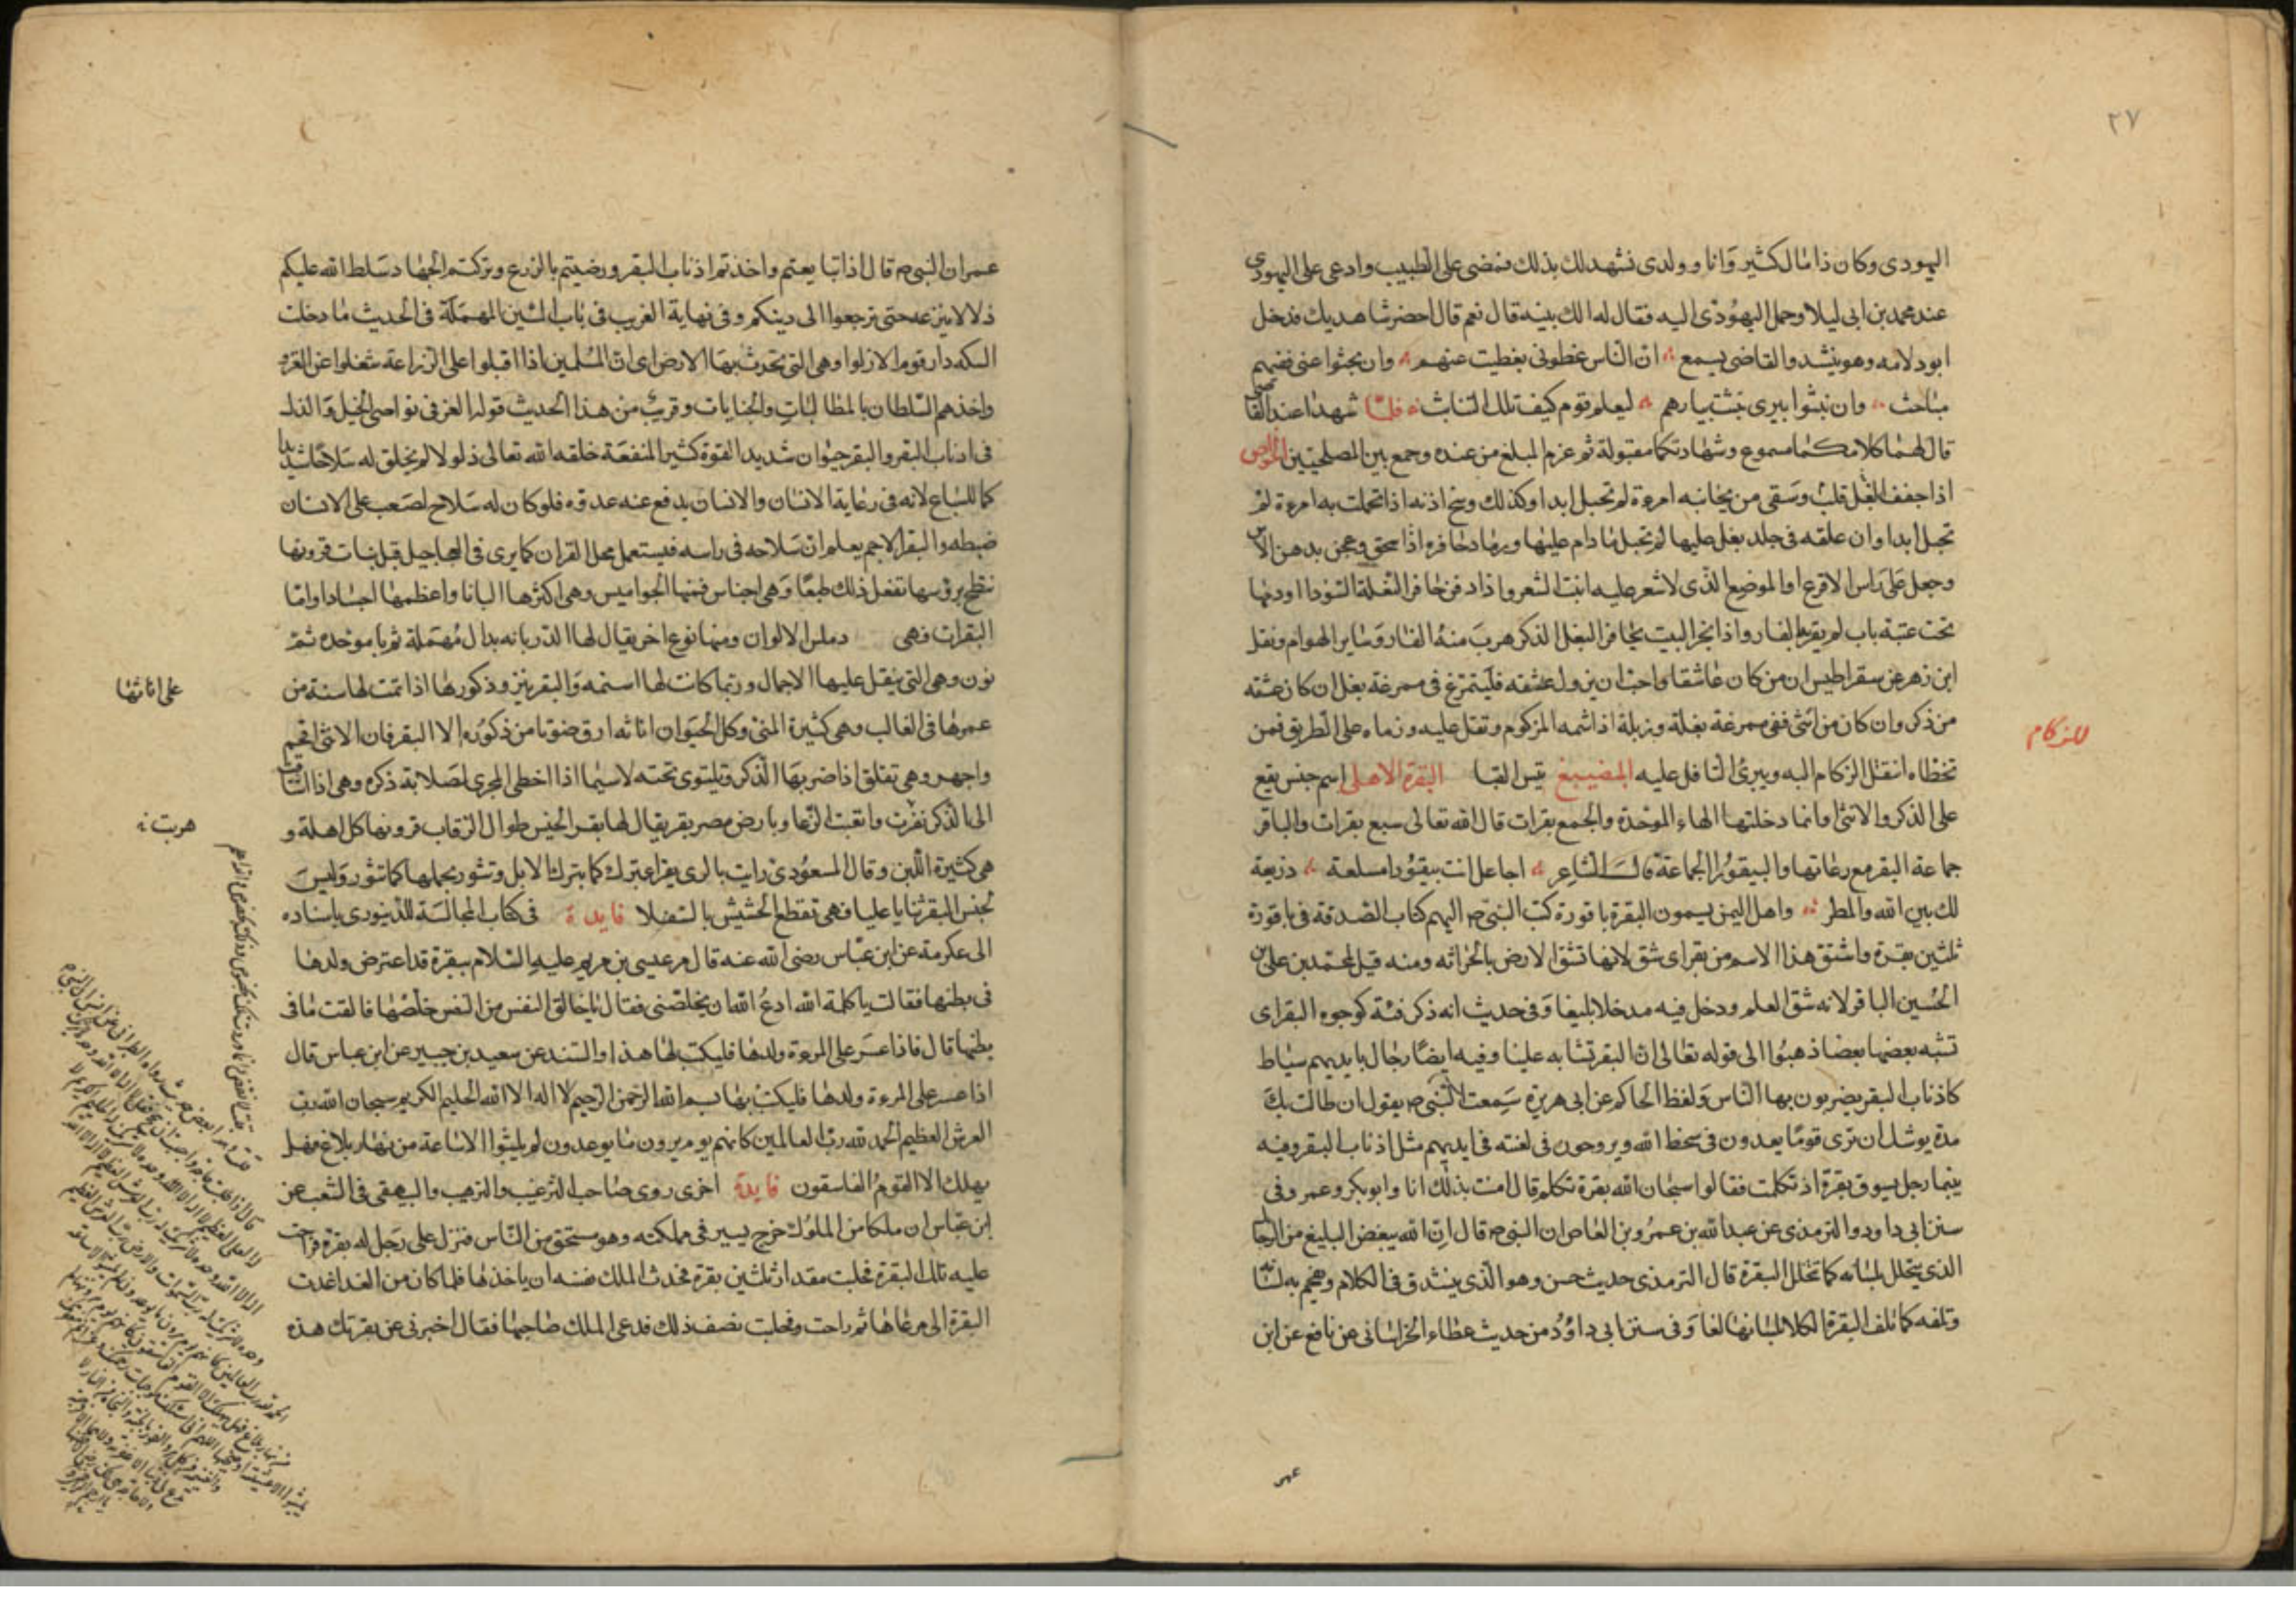 ٢٧
اليهودى وكان ذا مال كثير وانا وولدى نشهد لك بذلك فمضى على الطبيب وادعى على اليهودى
عند محمد بن ابى ليلا وحمل اليهودى اليه فقال له الك بينه قال نعم قال احضر شاهديك فدخل
ابو دلامه وهو ينشد والقاضى يسمع ان الناس غطونى بغطيت عنهم وان بحثوا عنى ففيهم
مباحث وان نبثوا بيرى نبثت بيارهم ليعلم قوم كيف تلك النبائث فلما شهدا عند القاضى
قال لهما كلامكما مسموع وشهادتكما مقبولة ثم غرم المبلغ من عنده وجمع بين المصلحتين الخواص
اذا جفف البغل قلب وسقى من نحاتيه امرءة لم تحبل ابدا وكذلك وسخ اذنه اذا تحملت به امرءة لم
تحبل ابدا وان علقه فى جلد بغل عليها لم تحبل ما دام عليها ورماد حافره اذا سحق وعجن بدهن الاس
وجعل على راس الاقرع او الموضع الذى لا شعر عليه انبت الشعر واذا دفن حافر البغلة السودا او دمها
تحت عتبة باب لم يقربه الفار واذا بخر البيت بحافر البغل الذكر هرب منه الفار وساير الهوام ونقل
ابن زهر عن سقراطيس ان من كان عاشقا واحب ان يزول عشقه فليتمرغ فى ممرغة بغل ان كان عشقه
من ذكر وان كان من انثى ففى ممرغة بغلة وزبلة اذا شمه المزكوم وتفل عليه ورماه على الطريق فمن
للزكام
تخطاه انتقل الزكام اليه ويبرئ التافل عليه المضيبغ تيس القبا البقرة الاهلى اسم جنس يقع
على الذكر والانثى وانما دخلتها الهاء الموحدة والجمع بقرات قال الله تعالى سبع بقرات والباقر
جماعة البقر مع رعاتها والبيقور الجماعة قال الشاعر اجاعل انت بيقورا مسلعة ذريعة
لك بين الله والمطر واهل اليمن يسمون البقرة باقورة كتب النبى ص اليهم كتاب الصدقة فى باقورة
ثلثين بقرة واشتق هذا الاسم من بقر اى شق لانها تشق الارض بالحراثه ومنه قيل لمحمد بن على بن
الحسين الباقر لانه شق العلم ودخل فيه مدخلا بليغا وفى حديث انه ذكر فتنة كوجوه البقر اى
تشبه بعضها بعضا ذهبوا الى قوله تعالى ان البقر تشابه علينا وفيه ايضا رجال بايديهم سياط
كاذناب البقر يضربون بها الناس ولفظ الحاكم عن ابى هريرة سمعت النبى ص يقول ان طالت بك
مدة يوشك ان ترى قوما يغدون فى سخط الله ويروحون فى لعنته فى ايديهم مثل اذناب البقر وفيه
بينما رجل يسوق بقرة اذ تكلمت فقالوا سبحان الله بقرة تكلم قال امنت بذلك انا وابوبكر وعمر وفى
سنن ابى داود والترمذى عن عبد الله بن عمرو بن العاص ان النبى ص قال ان الله يبغض البليغ من الرجال
الذى يتخلل بلسانه كما تخلل البقرة قال الترمذى حديث حسن وهو الذى يتشدق فى الكلام ويفخم به لسانه
وتلفه كما تلف البقرة الكلا بلسانها لفا وفى سنن ابى داؤد من حديث عطاء الخراسانى عن نافع عن ابن
عمر
عمر ان النبى ص قال اذا تبايعتم واخذتم اذناب البقر ورضيتم بالزرع وتركتم الجهاد سلط الله عليكم
ذلا لا ينزعه حتى ترجعوا الى دينكم وفى نهاية الغريب فى باب السين المهملة فى الحديث ما دخلت
السكه دار قوم الا زلوا وهى التى تحرث بها الارض اى ان المسلمين اذا اقبلوا على الزراعة شغلوا عن الغزو
واخذهم السلطان بالمطالبات والجنايات وقريب من هذا الحديث قوله العز فى نواصى الخيل والذل
فى اذناب البقر والبقر حيوان شديد القوة كثير المنفعة خلقه الله تعالى ذلولا لم يخلق له سلاحا شديدا
كما للسباع لانه فى رعاية الانسان والانسان يدفع عنه عدوه فلو كان له سلاح لصعب على الانسان
ضبطه والبقر الاجم يعلم ان سلاحه فى راسه فيستعمل محل القران كما يرى فى العجاجيل قبل نبات قرونها
تنطح برؤسها تفعل ذلك طبعا وهى اجناس فمنها الجواميس وهى اكثرها البانا واعظمها اجسادا واما
البقرات فهى دملس الالوان ومنها نوع اخر يقال لها الدربانه بدال مهملة ثم با موحده ثم
نون وهى التى ينقل عليها الاحمال وربما كانت لها اسنمه والبقر ينزو ذكورها اذا تمت لها سنة من
على اناثها
عمرها فى الغالب وهى كثيرة المنى وكل الحيوان اناثه ارق صوتا من ذكوره الا البقر فان الانثى افخم
واجهر وهى تقلق اذا ضربها الذكر وتلتوى تحته لاسيما اذا اخطى المجرى لصلابة ذكره وهى اذا اشتاقت
الى الذكر نفرت واتعبت الرعا وبارض مصر بقر يقال لها بقر الخيس طوال الرقاب قرونها كل اهلة و
هربت
هى كثيرة اللبن وقال المسعودى رايت بالرى بقرا تبرك كما يبرك الابل وتثور بحملها كما تثور وليس
لجنس البقر ثنايا عليا فهى تقطع الحشيش بالسفلا فايدة فى كتاب المجالسة للدينورى باسناده
الى عكرمة عن ابن عباس رضى الله عنه قال مر عيسى بن مريم عليه السلام ببقرة قد اعترض ولدها
فى بطنها فقالت يا كلمة الله ادع الله ان يخلصنى فقال يا خالق النفس من النفس خلصها فالقت ما فى
بطنها قال فاذا عسر على المرءة ولدها فليكتب لها هذا والسند عن سعيد بن جبير عن ابن عباس قال
اذا عسر على المرءة ولدها فليكتب بها بسم الله الرحمن الرحيم لا اله الا الله الحليم الكريم سبحان الله رب
العرش العظيم الحمد لله رب العالمين كانهم يوم يرون ما يوعدون لم يلبثوا الا ساعة من نهار بلاغ فهل
يهلك الا القوم الفاسقون فايدة اخرى روى صاحب الترغيب والترهيب والبيهقى فى الشعب عن
ابن عباس ان ملكا من الملوك خرج يسير فى مملكته وهو مستخف من الناس فنزل على رجل له بقرة فراحت
عليه تلك البقرة فحلبت مقدار ثلثين بقرة فحدث الملك نفسه ان ياخذها فلما كان من الغد اغدت
البقرة الى مرعاها ثم راحت وفحلبت نصف ذلك فدعى الملك صاحبها فقال اخبرنى عن بقرتك هذه